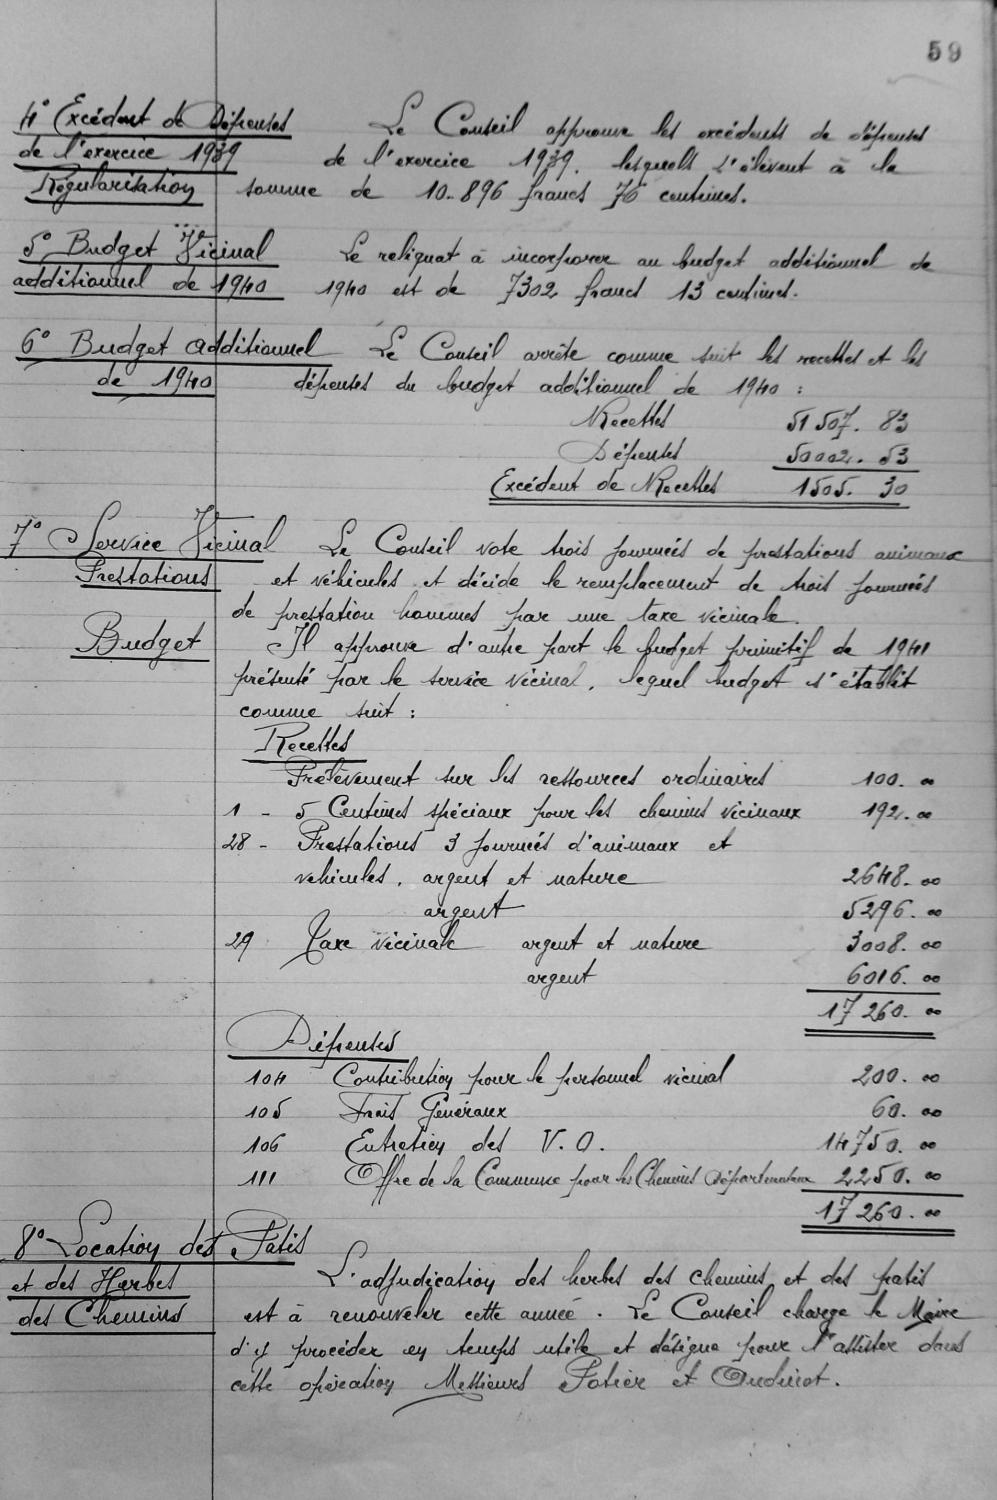 59
4° Excédent de Dépenses
de l'exercice 1939
Régularisation
Le Conseil approuve les excédents de dépenses
de l'exercice 1939. lesquels s'élèvent à la
somme de 10.896 francs 76 centimes.
5° Budget Vicinal
additionnel de 1940
Le reliquat à incorporer au budget additionnel de
1940 est de 7302 francs 13 centimes.
6° Budget additionnel
de 1940
Le Conseil arrête comme suit les recettes et les
dépenses du budget additionnel de 1940 :
Recettes 51507. 83
Dépenses 50002. 53
Excédent de Recettes 1505. 30
7° Service Vicinal
Prestations
Le Conseil vote trois journées de prestations animaux
et véhicules et décide le remplacement de trois journées
de prestation hommes par une taxe vicinale.
Budget
Il approuve d'autre part le budget primitif de 1941
présenté par le service vicinal, lequel budget s'établit
comme suit :
Recettes
Prélèvement sur les ressources ordinaires 100. 00
1 - 5 Centimes spéciaux pour les chemins vicinaux 192. 00
28 - Prestations 3 journées d'animaux et
vehicules. argent et nature 2648. 00
argent 5296. 00
29 Taxe vicinale argent et nature 3008. 00
argent 6016. 00
17260. 00
Dépenses
104 Contribution pour le personnel vicinal 200. 00
105 Frais Généraux 60. 00
106 Entretien des V. O. 14750. 00
111 Offre de la Commune pour les Chemins Départementaux 2250. 00
17260. 00
8° Location des Patis
et des Herbes
des Chemins
L'adjudication des herbes des chemins et des patis
est à renouveler cette année. Le Conseil charge le Maire
d'y procéder en temps utile et désigne pour l'assister dans
cette opération Messieurs Potier et Oudinot.